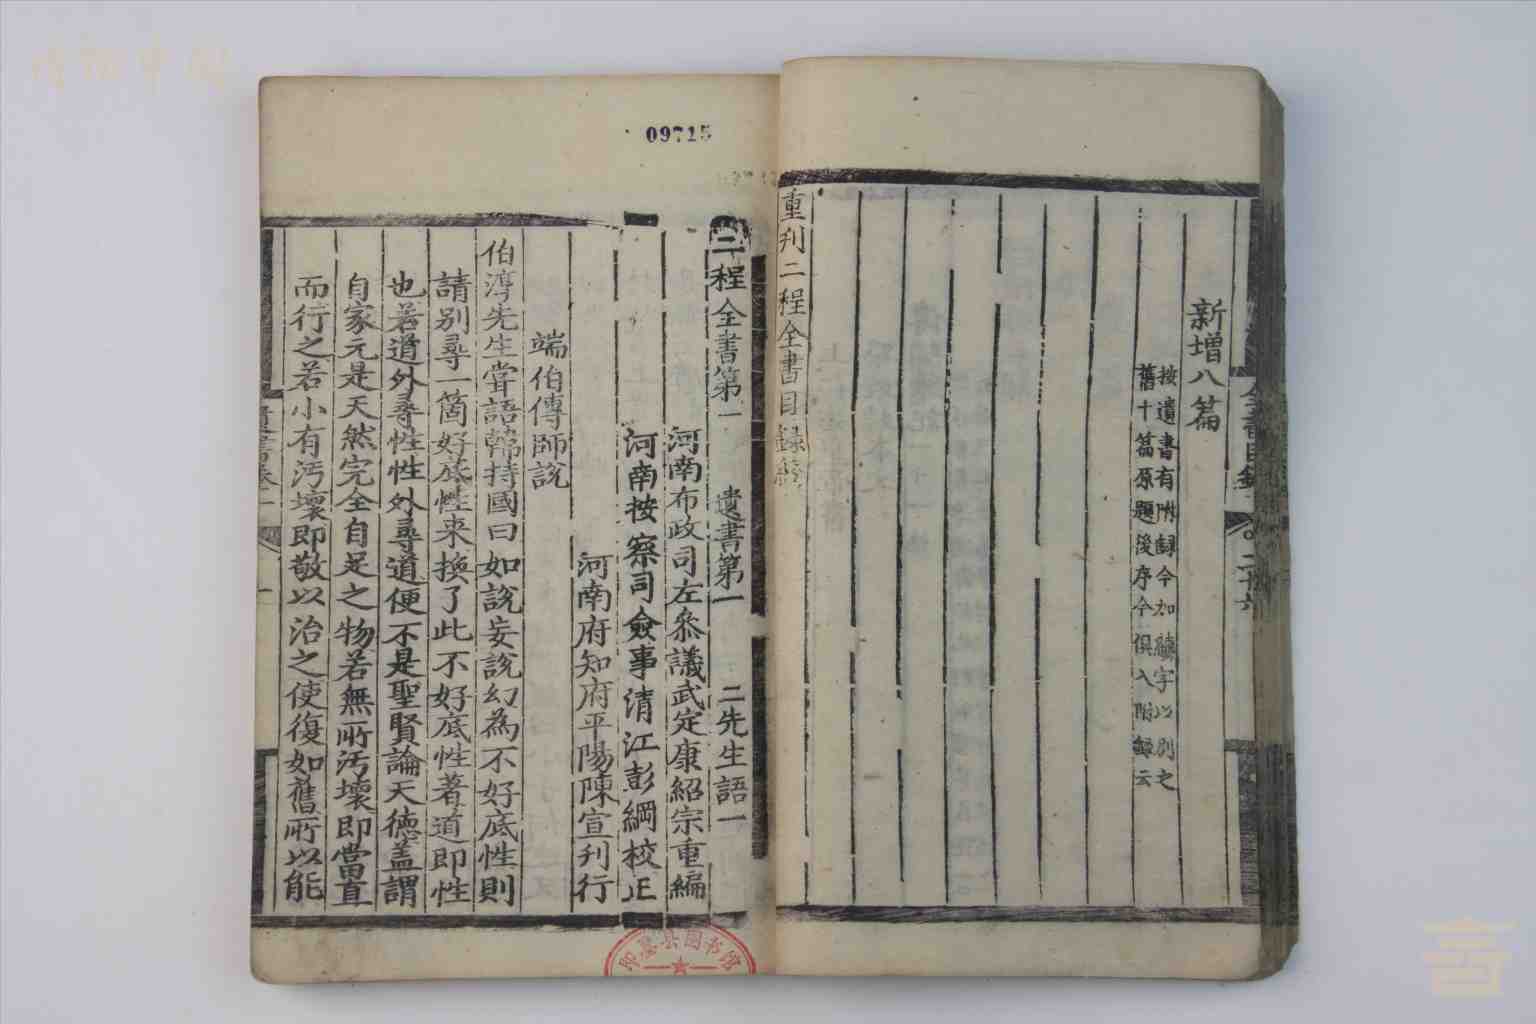 新增八篇
按遺書有附録今加續字以别之
舊十篇原題後序今俱入附録云
重刋二程全書目録終
09715
二程全書第一 遺書第一 二先生語一
河南布政司左叅議武定康紹宗重編
河南按察司僉事清江彭綱校正
河南府知府平陽陳宣刋行
端伯傳師說
伯淳先生嘗語韓持國曰如說妄說幻為不好底性則
請别尋一箇好底性來換了此不好底性著道即性
也若道外尋性性外尋道便不是聖賢論天德盖謂
自家元是天然完全自足之物若無所汚壞即當直
而行之若小有汚壞即敬以治之使復如舊所以能
即墨县图书馆